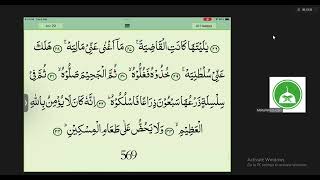 يٰلَيْتَهَا كَانَتِ الْقَاضِيَةَ ۚ ﴿٢٧﴾ مَآ اَغْنٰى عَنِّيْ مَالِيَهْ ۚ ﴿٢٨﴾ هَلَكَ
عَنِّيْ سُلْطٰنِيَهْ ۚ ﴿٢٩﴾ خُذُوْهُ فَغُلُّوْهُ ۙ ﴿٣٠﴾ ثُمَّ الْجَحِيْمَ صَلُّوْهُ ۙ ﴿٣١﴾ ثُمَّ فِيْ
سِلْسِلَةٍ ذَرْعُهَا سَبْعُوْنَ ذِرَاعًا فَاسْلُكُوْهُ ۗ ﴿٣٢﴾ اِنَّهٗ كَانَ لَا يُؤْمِنُ بِاللّٰهِ
الْعَظِيْمِ ۙ ﴿٣٣﴾ وَلَا يَحُضُّ عَلٰى طَعَامِ الْمِسْكِيْنِ ۗ ﴿٣٤﴾
569
Activate Windows
Go to PC settings to activate Windows.